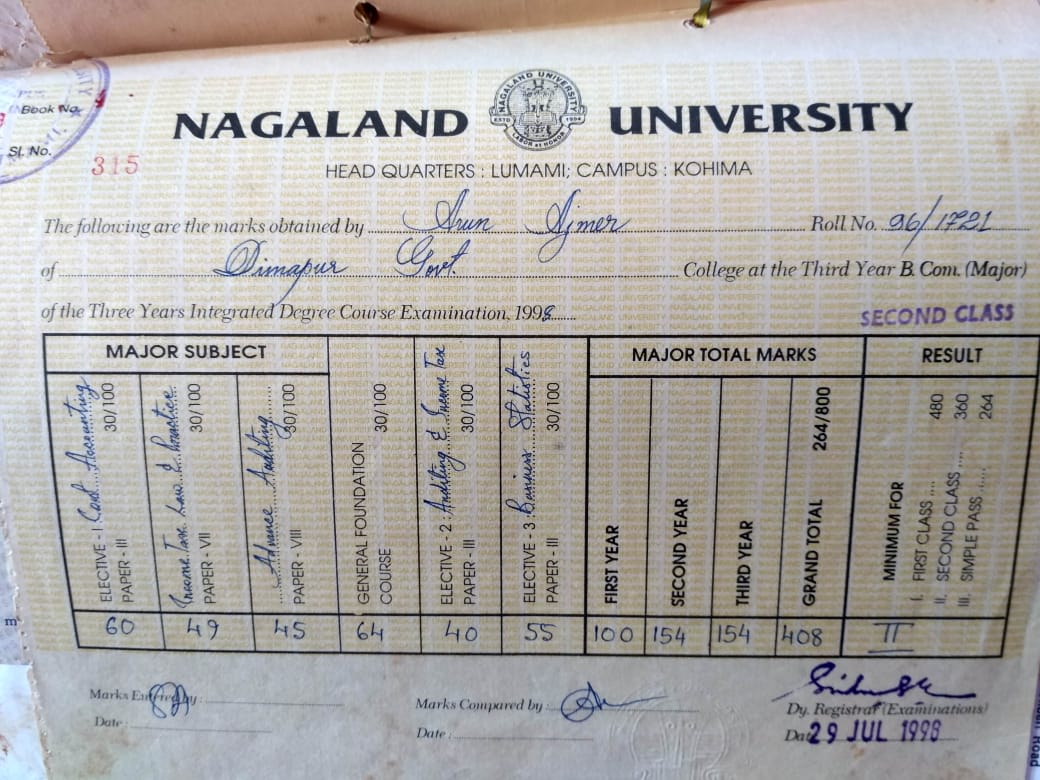 Book No.
Sl. No.
315
NAGALAND UNIVERSITY
NAGALAND UNIVERSITY
ESTD 1994
LABOR et HONOR
HEAD QUARTERS : LUMAMI; CAMPUS : KOHIMA
The following are the marks obtained by Arun Ajmer Roll No. 96/1721
of Dimapur Govt. College at the Third Year B. Com. (Major)
of the Three Years Integrated Degree Course Examination, 1998
SECOND CLASS
MAJOR SUBJECT
MAJOR TOTAL MARKS
RESULT
ELECTIVE - 1 Cost Accounting
PAPER - III 30/100
Income Tax Law & Practice
PAPER - VII 30/100
Advance Auditing
PAPER - VIII 30/100
GENERAL FOUNDATION
COURSE 30/100
ELECTIVE - 2 : Auditing & Income Tax
PAPER - III 30/100
ELECTIVE - 3 Business Statistics
PAPER - III 30/100
FIRST YEAR
SECOND YEAR
THIRD YEAR
GRAND TOTAL 264/800
MINIMUM FOR
I. FIRST CLASS .... 480
II. SECOND CLASS .... 360
III. SIMPLE PASS ..... 264
60 49 45 64 40 55 100 154 154 408 II
Marks Entered by :
Date :
Marks Compared by :
Date :
Dy. Registrar (Examinations)
Date 29 JUL 1998
Road